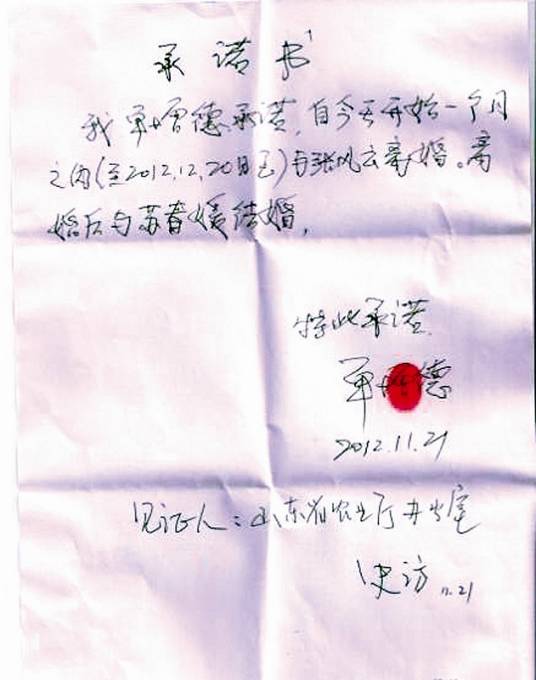 承诺书
我单增德承诺,自今天开始一个月
之内(至2012.12.20日已)与张风云离婚。离
婚后与苏春媛结婚.
特此承诺.
单增德
2012.11.21
见证人:山东省农业厅办公室
史访 11.21